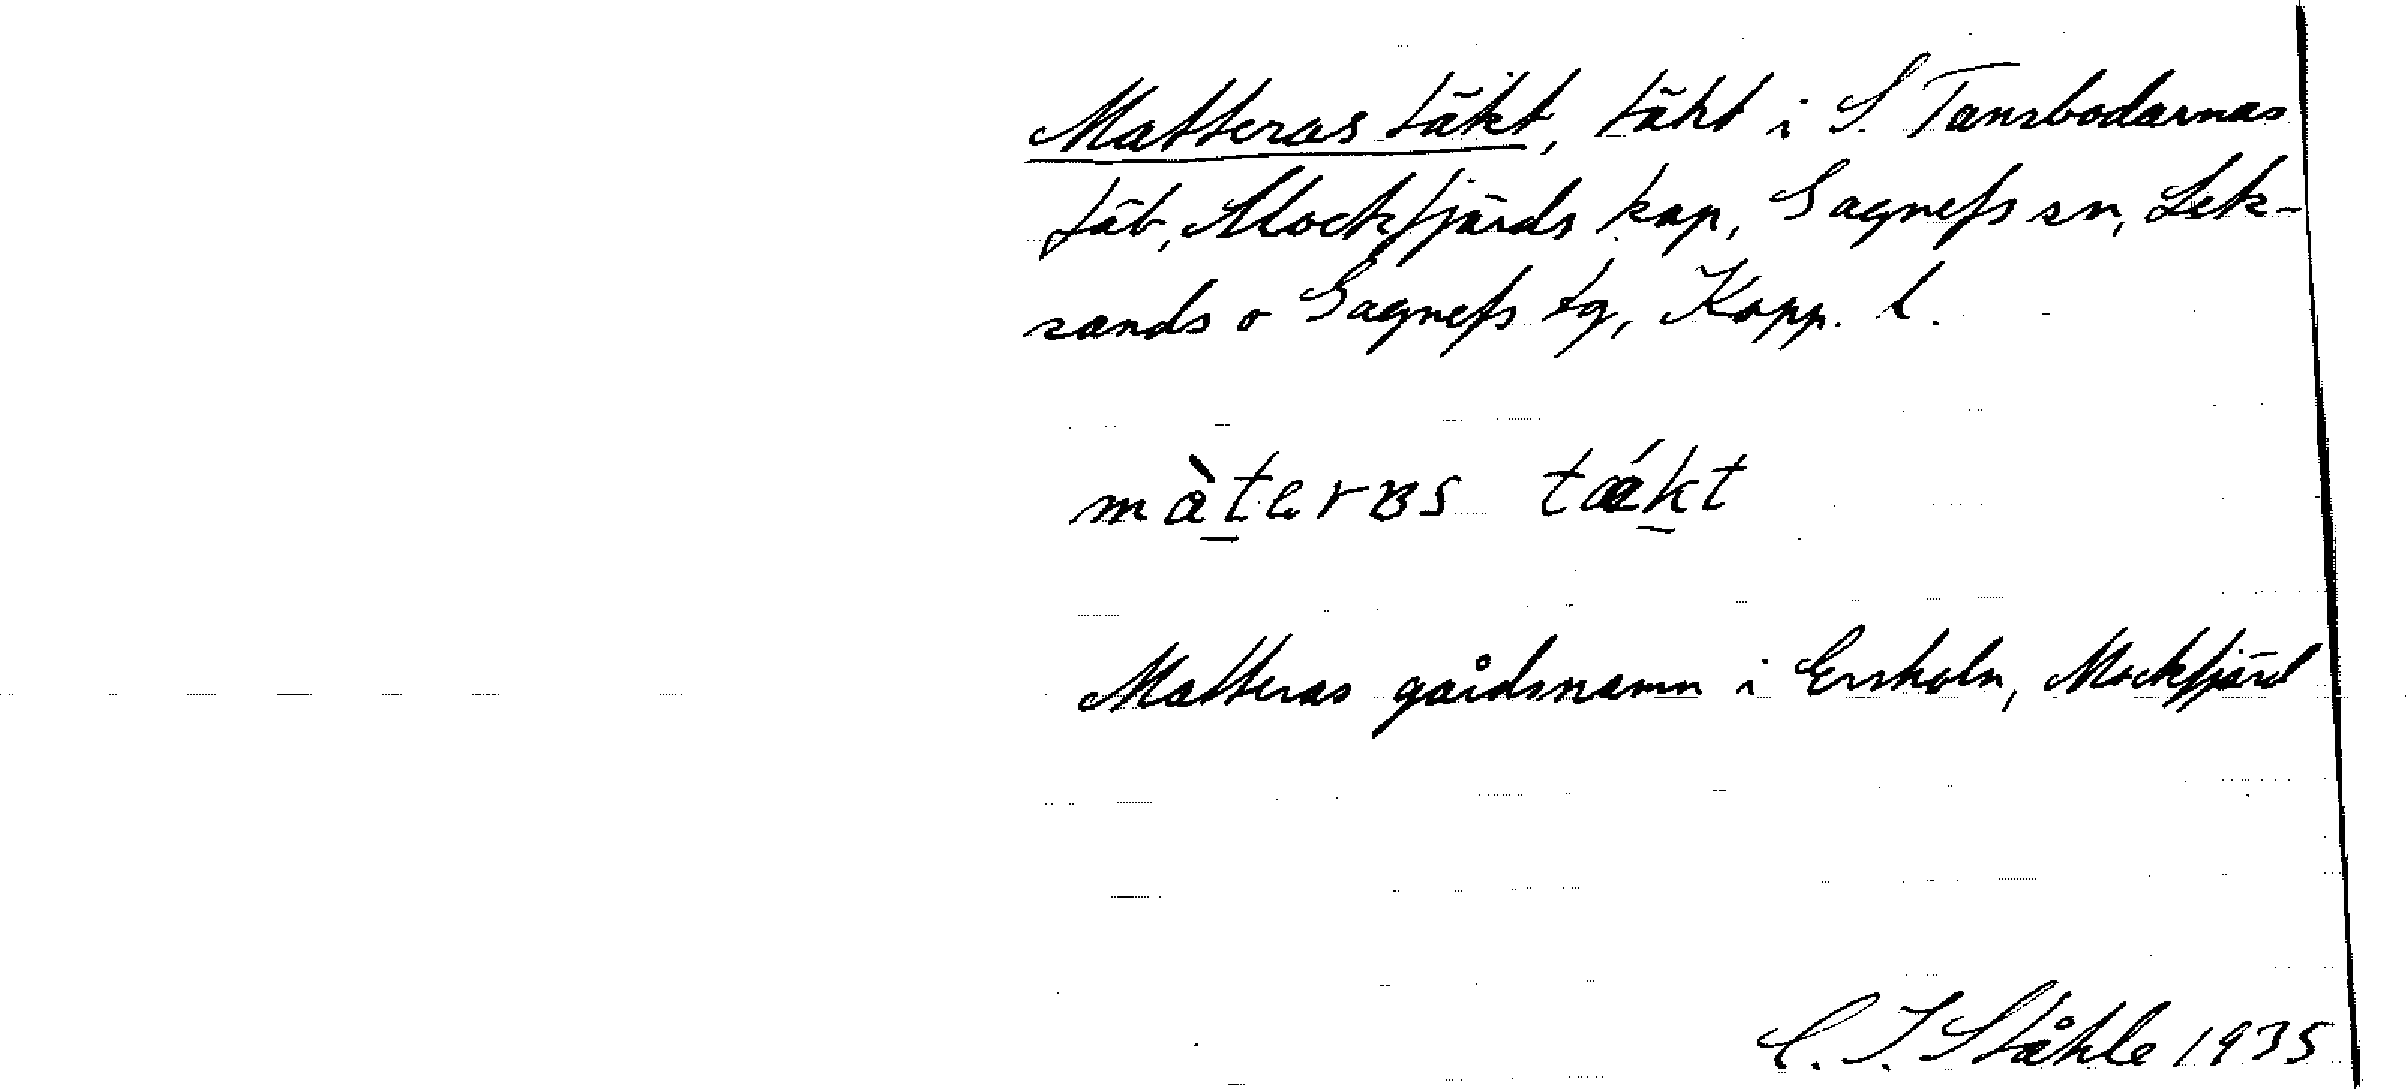 Matteras täkt, täkt i S. Tansbodarnas
fäb, Mockfjärds kap, Gagnefs sn, Lek-
sands o Gagnefs tg, Kopp. l.
màterɐs tǽkt
Matteras gårdsnamn i Ersholn, Mockfjärd
C. I. Ståhle 1935